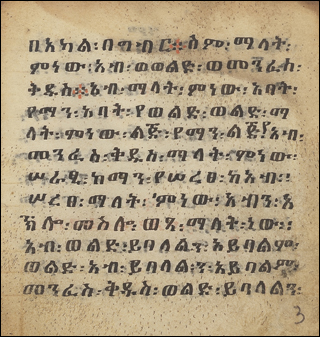 በአካል፡በግብር፡ስም፡ማለት፡
ምነው፡አብ፡ወወልድ፡ወመንፈስ፡
ቅዱስ፡አብ፡ማለት፡ምነው፡አባት፡
የማን፡አባት፡የወልድ፡ወልድ፡ማ
ለት፡ምነው፡ልጅ፡የማን፡ልጅ፡የአብ፡
መንፈስ፡ቅዱስ፡ማለት፡ምነው፡
ሠራፂ፡ከማን፡የሠረፀ፡ከአብ፡
ሠረፀ፡ማለት፡ምነው፡አብን፡
መስሎ፡ወጻ፡ማለት፡ነው፡
አብ፡ወልድ፡ይባላልን፡አይባልም፡
ወልድ፡አብ፡ይባላልን፡አይባልም፡
መንፈስ፡ቅዱስ፡ወልድ፡ይባላልን፡
3